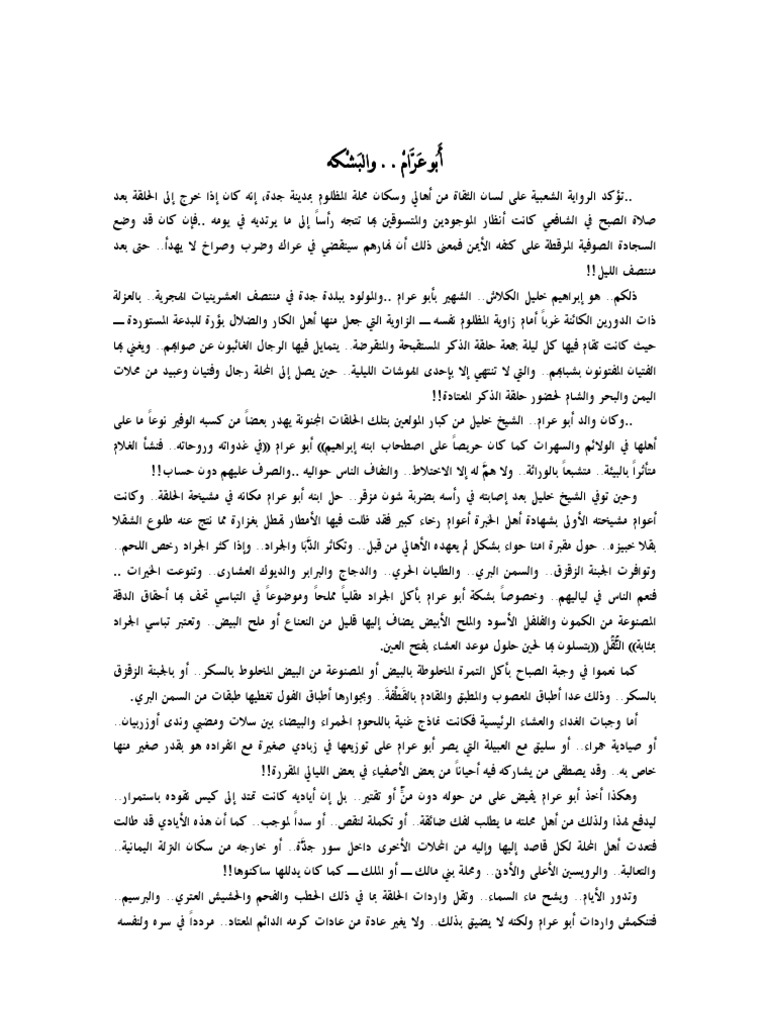 أَبو عَرَّامْ . . والبَشْكه
..تؤكد الرواية الشعبية على لسان الثقاة من أهالي وسكان محلة المظلوم بمدينة جدة، إنه كان إذا خرج إلى الحلقة بعد
صلاة الصبح في الشافعي كانت أنظار الموجودين والمتسوقين بها تتجه رأساً إلى ما يرتديه في يومه ..فإن كان قد وضع
السجادة الصوفية المرقطة على كتفه الأيمن فمعنى ذلك أن نهارهم سينقضي في عراك وضرب وصراخ لا يهدأ.. حتى بعد
منتصف الليل!!
ذلكم.. هو إبراهيم خليل الكلاش.. الشهير بأبو عرام ..والمولود ببلدة جدة في منتصف العشرينيات الهجرية.. بالعزلة
ذات الدورين الكائنة غرباً أمام زاوية المظلوم نفسه ــ الزاوية التي جعل منها أهل الكار والضلال بؤرة للبدعة المستوردة ــ
حيث كانت تقام فيها كل ليلة جمعة حلقة الذكر المستقبحة والمنقرضة.. يتمايل فيها الرجال الغائبون عن صوابهم.. ويغني بها
الفتيان المفتونون بشبابهم.. والتي لا تنتهي إلا بإحدى الهوشات الليلية.. حين يصل إلى المحلة رجال وفتيان وعبيد من محلات
اليمن والبحر والشام لحضور حلقة الذكر المعتادة!!
..وكان والد أبو عرام.. الشيخ خليل من كبار المولعين بتلك الحلقات المجنونة يهدر بعضاً من كسبه الوفير نوعاً ما على
أهلها في الولائم والسهرات كما كان حريصاً على اصطحاب ابنه إبراهيم)) أبو عرام ((في غدواته وروحاته.. فنشأ الغلام
متأثراً بالبيئة.. متشبعاً بالوراثة.. ولا همَّ له إلا الاختلاط.. والتفاف الناس حواليه ..والصرف عليهم دون حساب!!
وحين توفي الشيخ خليل بعد إصابته في رأسه بضربة شون مزقر.. حل ابنه أبو عرام مكانه في مشيخة الحلقة.. وكانت
أعوام مشيخته الأولى بشهادة أهل الخبرة أعوام رخاء كبير فقد ظلت فيها الأمطار تهطل بغزارة مما نتج عنه طلوع الشقلا
بقلا خبيزه.. حول مقبرة امنا حواء بشكل لم يعهده الأهالي من قبل.. وتكاثر الدَّبَا والجراد.. وإذا كثر الجراد رخص اللحم..
وتوافرت الجبنة الزقزق.. والسمن البري.. والطليان الحري.. والدجاج والبرابر والديوك العشارى.. وتنوعت الخيرات ..
فنعم الناس في لياليهم.. وخصوصاً بشكة أبو عرام يأكل الجراد مقلياً مملحاً وموضوعاً في التباسي تحف بها أحقاق الدقة
المصنوعة من الكمون والفلفل الأسود والملح الأبيض يضاف إليها قليل من النعناع أو ملح البيض.. وتعتبر تباسي الجراد
بمثابة)) النُّقُل ((يتسلون بها لحين حلول موعد العشاء يفتح العين.
كما نعموا في وجبة الصباح بأكل التمرة المخلوطة بالبيض أو المصنوعة من البيض المخلوط بالسكر.. أو بالجبنة الزقزق
بالسكر.. وذلك عدا أطباق المعصوب والمطبق والمقادم بالقَطْفَةَ.. وبجوارها أطباق الفول تغطيها طبقات من السمن البري.
أما وجبات الغداء والعشاء الرئيسية فكانت نماذج غنية باللحوم الحمراء والبيضاء بين سلات ومضبي وندى أوزربيان..
أو صيادية حمراء.. أو سليق مع العبيلة التي يصر أبو عرام على توزيعها في زبادي صغيرة مع انفراده هو بقدر صغير منها
خاص به.. وقد يصطفى من يشاركه فيه أحياناً من بعض الأصفياء في بعض الليالي المقررة!!
وهكذا أخذ أبو عرام يفيض على من حوله دون منٍّ أو تقتير.. بل إن أياديه كانت تمتد إلى كيس نقوده باستمرار..
ليدفع لهذا ولذلك من أهل محلته ما يطلب لفك ضائقة.. أو تكملة لنقص.. أو سداً لموجب.. كما أن هذه الأيادي قد طالت
فتعدت أهل المحلة لكل قاصد إليها وإليه من المحلات الأخرى داخل سور جدَّة.. أو خارجه من سكان النزلة اليمانية..
والثعالبة.. والرويسين الأعلى والأدنى.. ومحلة بني مالك ــ أو الملك ــ كما كان يدللها ساكنوها!!
وتدور الأيام.. ويشح ماء السماء.. وتقل واردات الحلقة بما في ذلك الحطب والفحم والحشيش العتري.. والبرسيم..
فتنكمش واردات أبو عرام ولكنه لا يضيق بذلك.. ولا يغير عادة من عادات كرمه الدائم المعتاد.. مردداً في سره ولنفسه